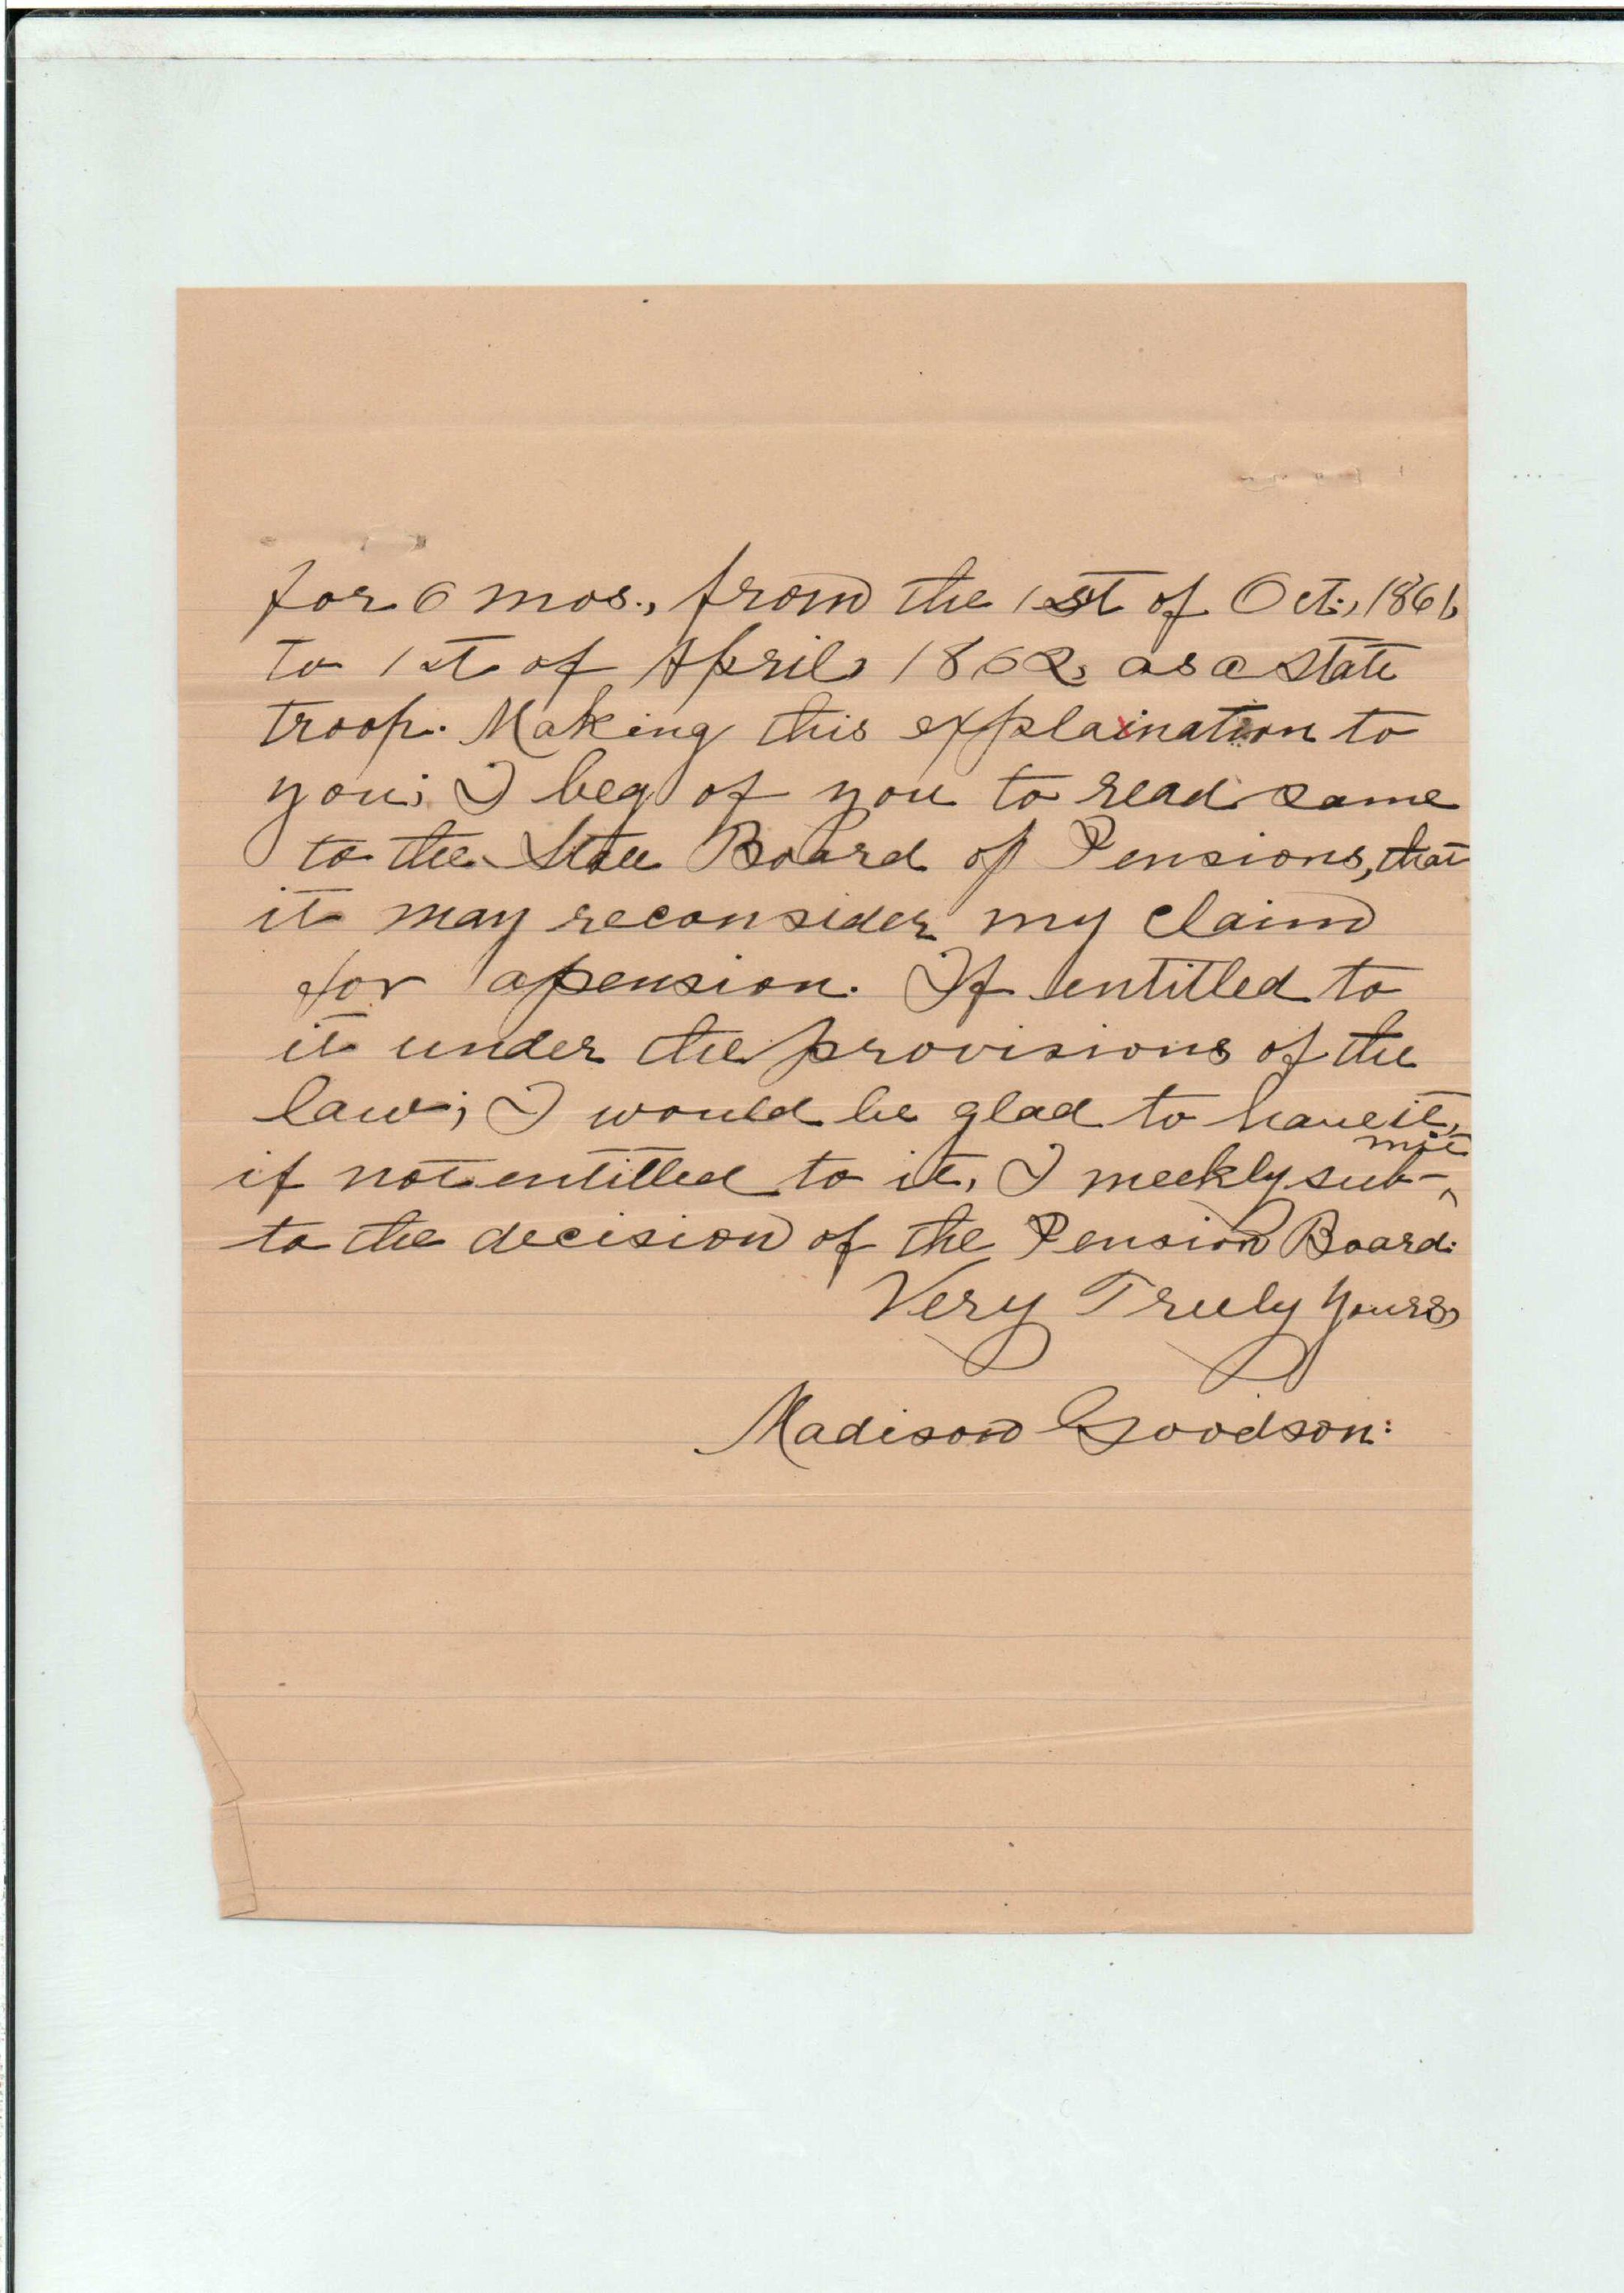 for 6 mos., from the 1st of Oct., 1861,
to 1st of April, 1862, as a State
troop. Making this explaination to
you; I beg of you to read same
to the State Board of Pensions, that
it may reconsider my claim
for a pension. If entitled to
it under the provisions of the
law; I would be glad to have it,
if not entitled to it, I meekly sub-mit
to the decision of the Pension Board.
Very Truly Yours,
Madison Goodson: